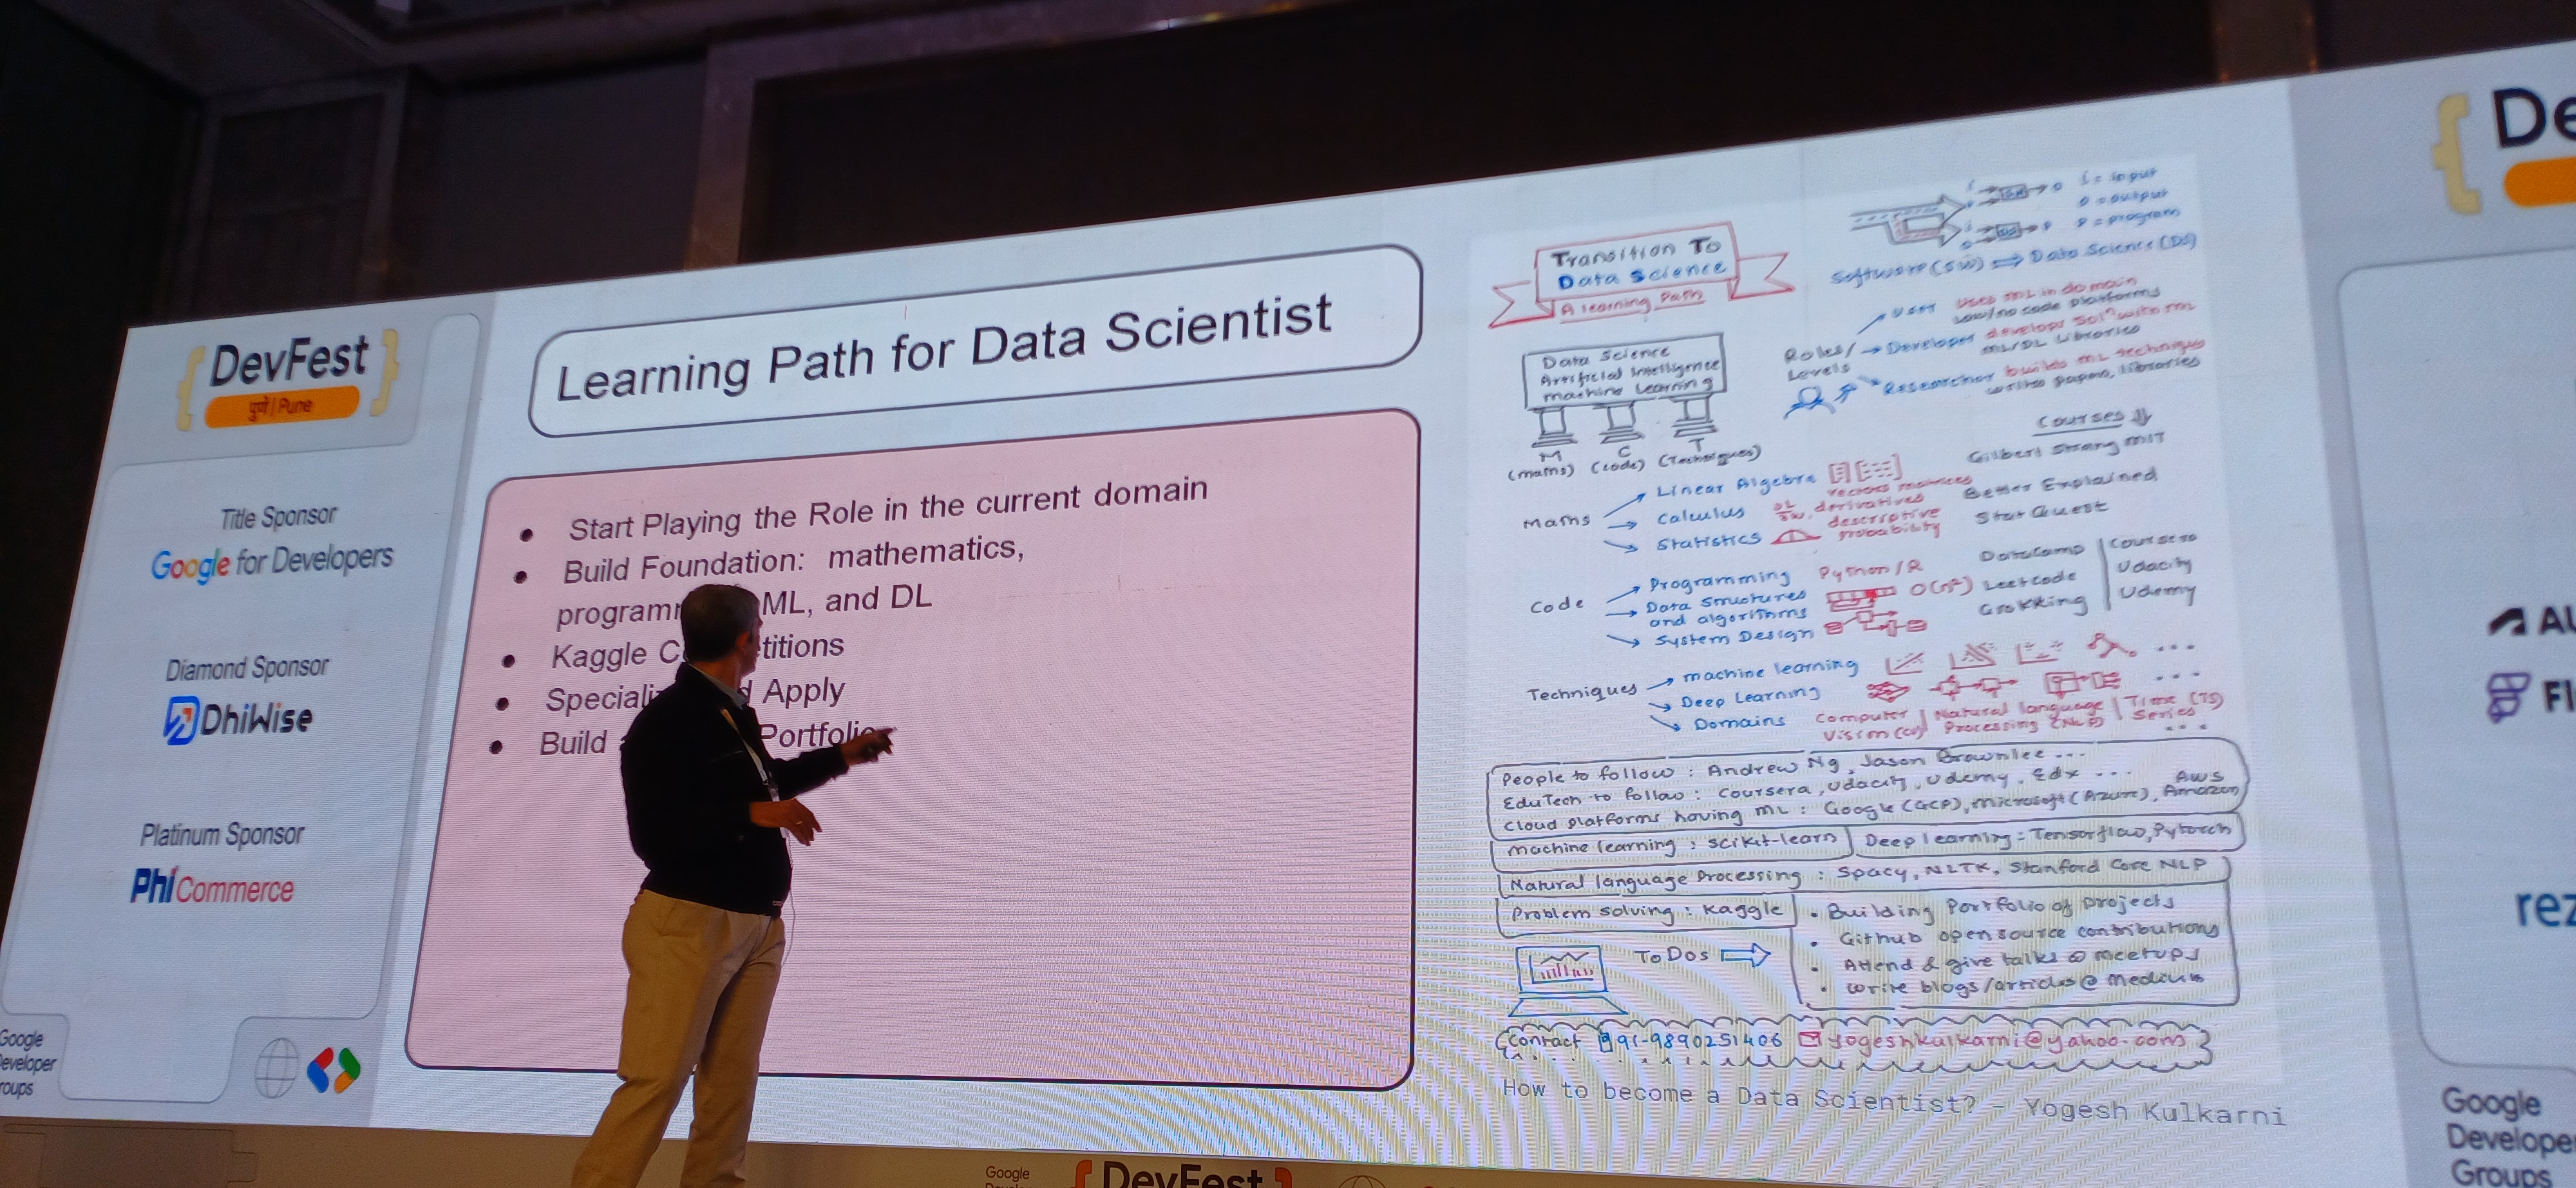 { DevFest }
पुणे | Pune
Title Sponsor
Google for Developers
Diamond Sponsor
DhiWise
Platinum Sponsor
PhiCommerce
Google
eveloper
roups
Learning Path for Data Scientist
● Start Playing the Role in the current domain
● Build Foundation: mathematics,
programm ML, and DL
● Kaggle C titions
● Speciali d Apply
● Build Portfolio
Transition To
Data Science
A learning Path
i = input
o = output
P = program
Software (SW) ⇒ Data Science (DS)
Data Science
Artificial Intelligence
machine Learning
M C T
(maths) (code) (Techniques)
Roles/
Levels
→ user uses ML in domain
low/no code platforms
→ Developer develops Solⁿ with ML
ML/DL Libraries
→ Researcher builds ML technique
writes papers, libraries
Courses
Maths
→ Linear Algebra vectors matrices
Gilbert Strang MIT
→ Calculus derivatives
Better Explained
→ Statistics descriptive
probability
Stat Quest
Code
→ Programming Python / R
DataCamp | Coursera
→ Data Structures
and algorithms
O(n²) Leetcode | Udacity
→ System Design
Grokking | Udemy
Techniques → machine learning ...
→ Deep Learning ...
→ Domains Computer
Vision (CV) | Natural language
Processing (NLP) | Time (TS)
Series
...
People to follow : Andrew Ng, Jason Brownlee ...
EduTech to follow : Coursera, Udacity, Udemy, Edx ...
Cloud platforms having ML : Google (GCP), Microsoft (Azure), AWS
Amazon
machine learning : scikit-learn
Deep learning : Tensorflow, Pytorch
Natural language Processing : Spacy, NLTK, Stanford Core NLP
Problem solving : Kaggle
ToDos
• Building Portfolio of projects
• Github open source contributions
• Attend & give talks @ meetups
• write blogs/articles @ medium
Contact 91-9890251406 yogeshkulkarni@yahoo.com
How to become a Data Scientist? - Yogesh Kulkarni
{ De
AU
Fl
rez
Google
Develope
Groups
Google
{ DevFest }